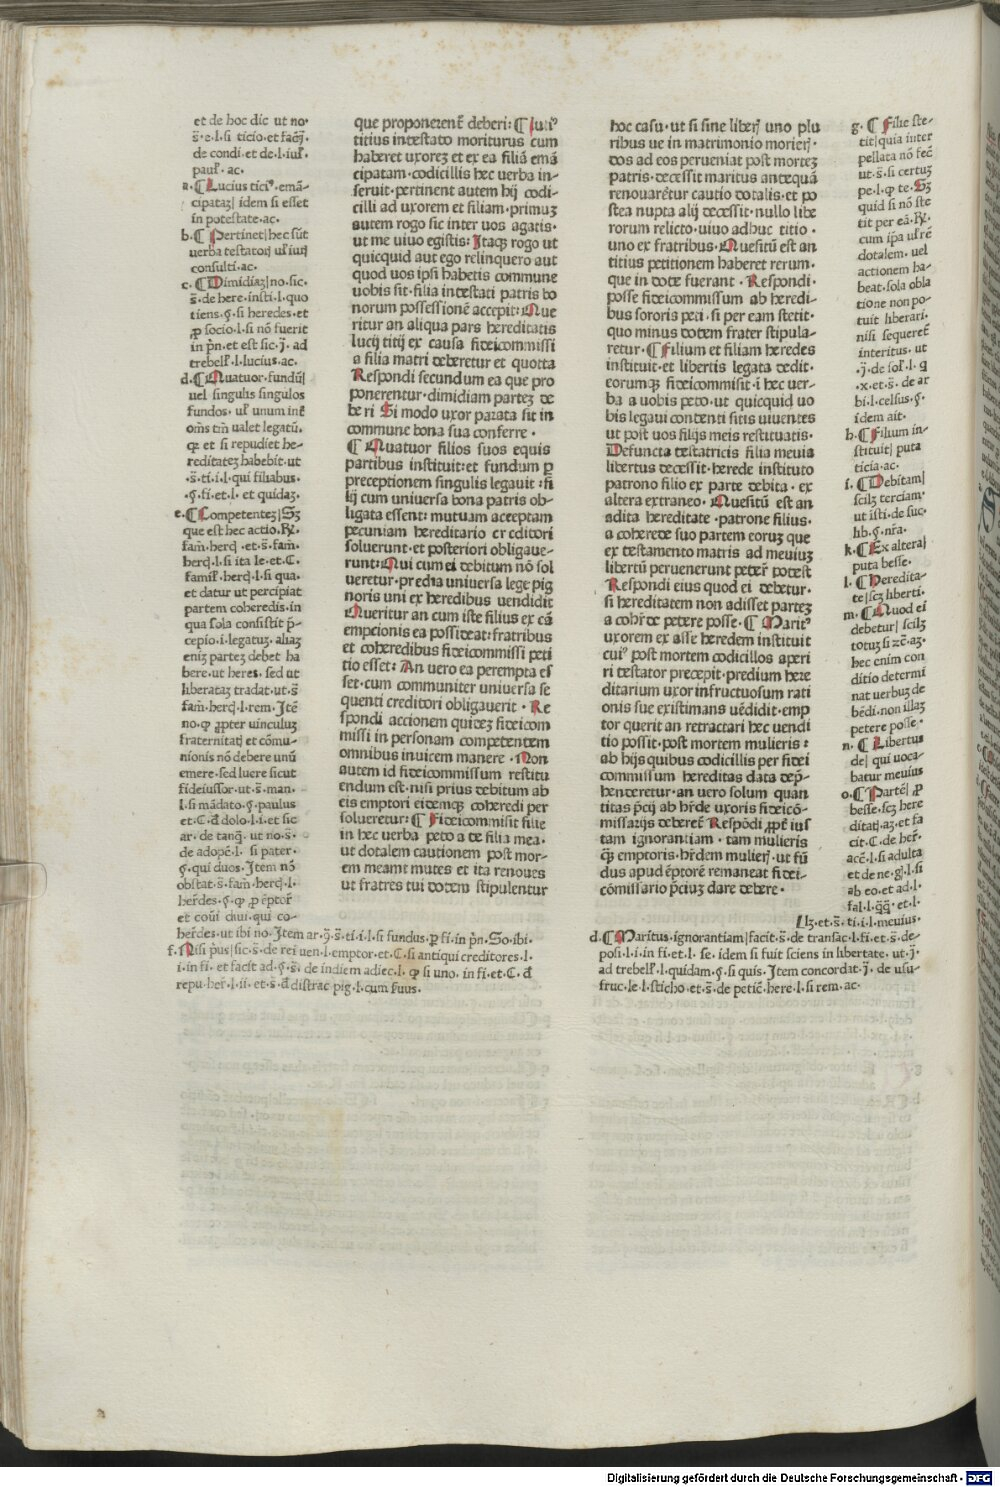 et de hoc dic ut no·
s̄·e·l·si ticio·et facꝫ·
de condi·et de·l·iul'·
paul'· ac·
a·¶Lucius tici⁹·emā-
cipataꝫ| idem si esset
in potestate·ac·
b·¶Pertinet|hec sūt
verba testatorꝭ ul' iurꝭ
consulti·ac·
c·¶Dimidiaꝫ|no·sic·
s̄·de here·insti·l·quo
tiens·§·si heredes·et
ꝓ socio·l·si nō fuerit
in pn̄·et est sic·j̄· ad
trebell'·l·lucius·ac·
d·¶Quatuor·fundū|
uel singulis singulos
fundos· ul' unum int̄
om̄s tm̄ ualet legatū·
ꝙ et si repudiet he-
reditateꝫ habebit·ut
·s̄·ti·i·l·qui filiabus·
·§·fi·et·l· et quidaꝫ·
e·¶Competenteꝫ|Sꝫ
que est hec actio·℟·
fam̄·herc̄ꝭ·et·s̄·fam̄·
herc̄ꝭ·l·si ita le·et·C·
famil'·herc̄ꝭ·l·si qua·
et datur ut percipiat
partem coheredis·in
qua sola consistit p̄-
cepio·i·legatuꝫ· aliaꝫ
eniꝫ parteꝫ debet ha
bere·ut heres· sed ut
liberataꝫ tradat·ut·s̄·
fam̄·herc̄ꝭ·l·rem·Itē
no·ꝙ ꝓpter uinculuꝫ
fraternitatꝭ et cōmu-
nionis nō debere unū
emere·sed luere sicut
fideiussor·ut·s̄·man·
l·si mādato·§·paulus
et·C·đ dolo·l·i·et sic
ar· de tanqꝫ· ut no·s̄·
de adopc̄·l· si pater·
§·qui duos·Item nō
obstat·s̄·fam̄·hercꝭ·l·
her̄des·§·ꝙ ꝓ ēptor̄
et coūi diui·qui co-
her̄des·ut ibi no·Item ar·9̄·s̄·ti·i·l·si fundus·ꝑ fi·in pn̄·So·ibi·
f·Nisi p̄us|sic·s̄·de rei uen·l·emptor·et·C·si antiqui creditores·l·
i·in fi·et facit ad·§·s̄· de indiem adiec·l· ꝙ si uno· in fi·et·C· đ
repu·her̄·l·ii· et·s̄·đ distrac pig·l·cum s̄uus·
que proponeremt̄ deberi:¶Luti⁹
titius intestato moriturus cum
haberet uxoreꝫ et ex ea filiā emā
cipatam·codicillis hec verba in-
seruit·pertinent autem hij codi-
cilli ad uxorem et filiam·primuꝫ
autem rogo sic inter uos agatis·
ut me uiuo egistis: Itaqꝫ rogo ut
quicquid aut ego relinquero aut
quod uos ipsi habetis commune
uobis sit·filia intestati patris bo
norum possessionē accepit: Que
ritur an aliqua pars hereditatis
lucij titij ex causa fideicommissi
a filia matri deberetur et quotta
Respondi secundum ea que pro
ponerentur·dimidiam parteꝫ de
be ri Si modo uxor parata sit in
commune bona sua conferre·
¶Quatuor filios suos equis
partibus instituit·et fundum ꝑ
preceptionem singulis legauit·fi
lij cum universa bona patris ob-
ligata essent: mutuam acceptam
pecuniam hereditario creditori
soluerunt·et posteriori obligaue-
runt: Qui cum ei debitum nō sol
ueretur·predia universa lege pig
noris uni ex heredibus vendidit
Queritur an cum iste filius ex cā
empcionis ea possideat: fratribus
et coheredibus fideicommissi peti
tio esset: An vero ea perempta es
set·cum communiter universa se
quenti creditori obligauerit· Re
spondi accionem quideꝫ fideicom
missi in personam competentem
omnibus invicem manere·Non
autem id fideicommissum restitu
endum est·nisi prius debitum ab
eis emptori eidemqꝫ coheredi per
solueretur:¶Fideicommisit filie
in hec verba peto a te filia mea·
ut dotalem cautionem post mor-
em meamt mutes et ita renoues
ut fratres tui dotem stipulentur
hoc casu·ut si sine liberꝭ uno plu
ribus ue in matrimonio morierꝭ·
dos ad eos perueniat post morteꝫ
patris·decessit maritus antequā
renouarētur cautio dotalis·et po
stea nupta alij decessit·nullo libe
rorum relicto·uiuo adhuc titio·
uno ex fratribus·Quesitū est an
titius petitionem haberet rerum·
que in dote fuerant·Respondi·
posse fideicommissum ab heredi-
bus sororis peti·si per eam stetit·
quo minus dotem frater stipula-
retur·¶Filium et filiam heredes
instituit·et libertis legata dedit·
eorumqꝫ fideicommisit·ī hec ver-
ba a uobis peto·ut quicquid uo
bis legaui contenti sitis uiuentes
ut post uos filijs meis restituatis·
Defuncta testatricis filia meuia
libertus decessit·herede instituto
patrono filio ex parte debita·ex
altera extraneo·Quesitū est an
adita hereditate·patrone filius·
a coherede suo partem eoruꝫ que
ex testamento matris ad meuiuꝫ
libertū peruenerunt peter̄ potest
Respondi eius quod ei debetur·
si hereditatem non adisset parteꝫ
a cohr̄de petere posse·¶Marit⁹
uxorem ex asse heredem instituit
cui⁹ post mortem codicillos aperi
ri testator precepit·predium here
ditarium uxor infructuosum rati
onis sue existimans vēdidit·emp
tor querit an retractari hec vendi
tio possit·post mortem mulieris:
ab hijs quibus codicillis per fidei
commissum hereditas data dep̄-
henderetur·an vero solum quan
titas p̄cij ab hr̄de uxoris fideicō-
missarijs deberet̄ Respōdi ꝓpt̄ ius
tam ignorantiam·tam mulieris
qꝫ emptoris·hr̄dem mulierꝭ·ut fū
dus apud ēptorē remaneat fidei-
cōmissario p̄ciuꝫ dare debere·
g·¶Filie ste-
tit|quia inter
pellata nō fec̄
ut·s̄·si certuꝫ
pe·l·ꝙ te·Sꝫ
quid si nō ste
tit per eā·℟·
cum ip̄a ul'rē
dotalem· vel
actionem ha-
beat·sola obla
tione non po-
tuit liberari·
nisi sequeret̄
interitus· ut
·j̄·de sol'·l· q
·x·et·s̄·de ar
bi·l·celsus·§·
idem ait·
h·¶Filium in-
stituit| puta
ticia·ac·
i·¶Debitam|
scilꝫ terciam·
ut īsti·de suc·
lib·§·nr̄a·
k·¶Ex altera|
puta besse·
l·¶Heredita-
te|scꝫ liberti·
m·¶Quod ei
debetur| scilꝫ
totuꝫ si rc̄·aꝫ·
hec enim con
ditio determi
nat verbuꝫ de
bēdi·non illaꝫ
petere posse·
n·¶Libertus
de| qui uoca-
batur meuius
o·¶Partē| ꝓ
besse·scꝫ here
ditatꝭ·aꝫ·et fa
cit·C·de her̄·
acc̄·l·si adulta
et de ne·gꝭ·l·si
ab eo·et ad·l·
fal·l·qq̄·et·l·
lꝫ·et·s̄·ti·i·l·meuius·
d·¶Maritus·ignorantiam|facit·s̄·de transac·l·fi·et·s̄·de-
posi·l·i·in fi·et·l· se· idem si fuit sciens in libertate· ut·j̄·
ad trebell'·l·quidam·§·si quis·Item concordat·j̄·de usu-
fruc·le·l·sticho·et·s̄·de petic̄·here·l·si rem·ac·
Digitalisierung gefördert durch die Deutsche Forschungsgemeinschaft - DFG